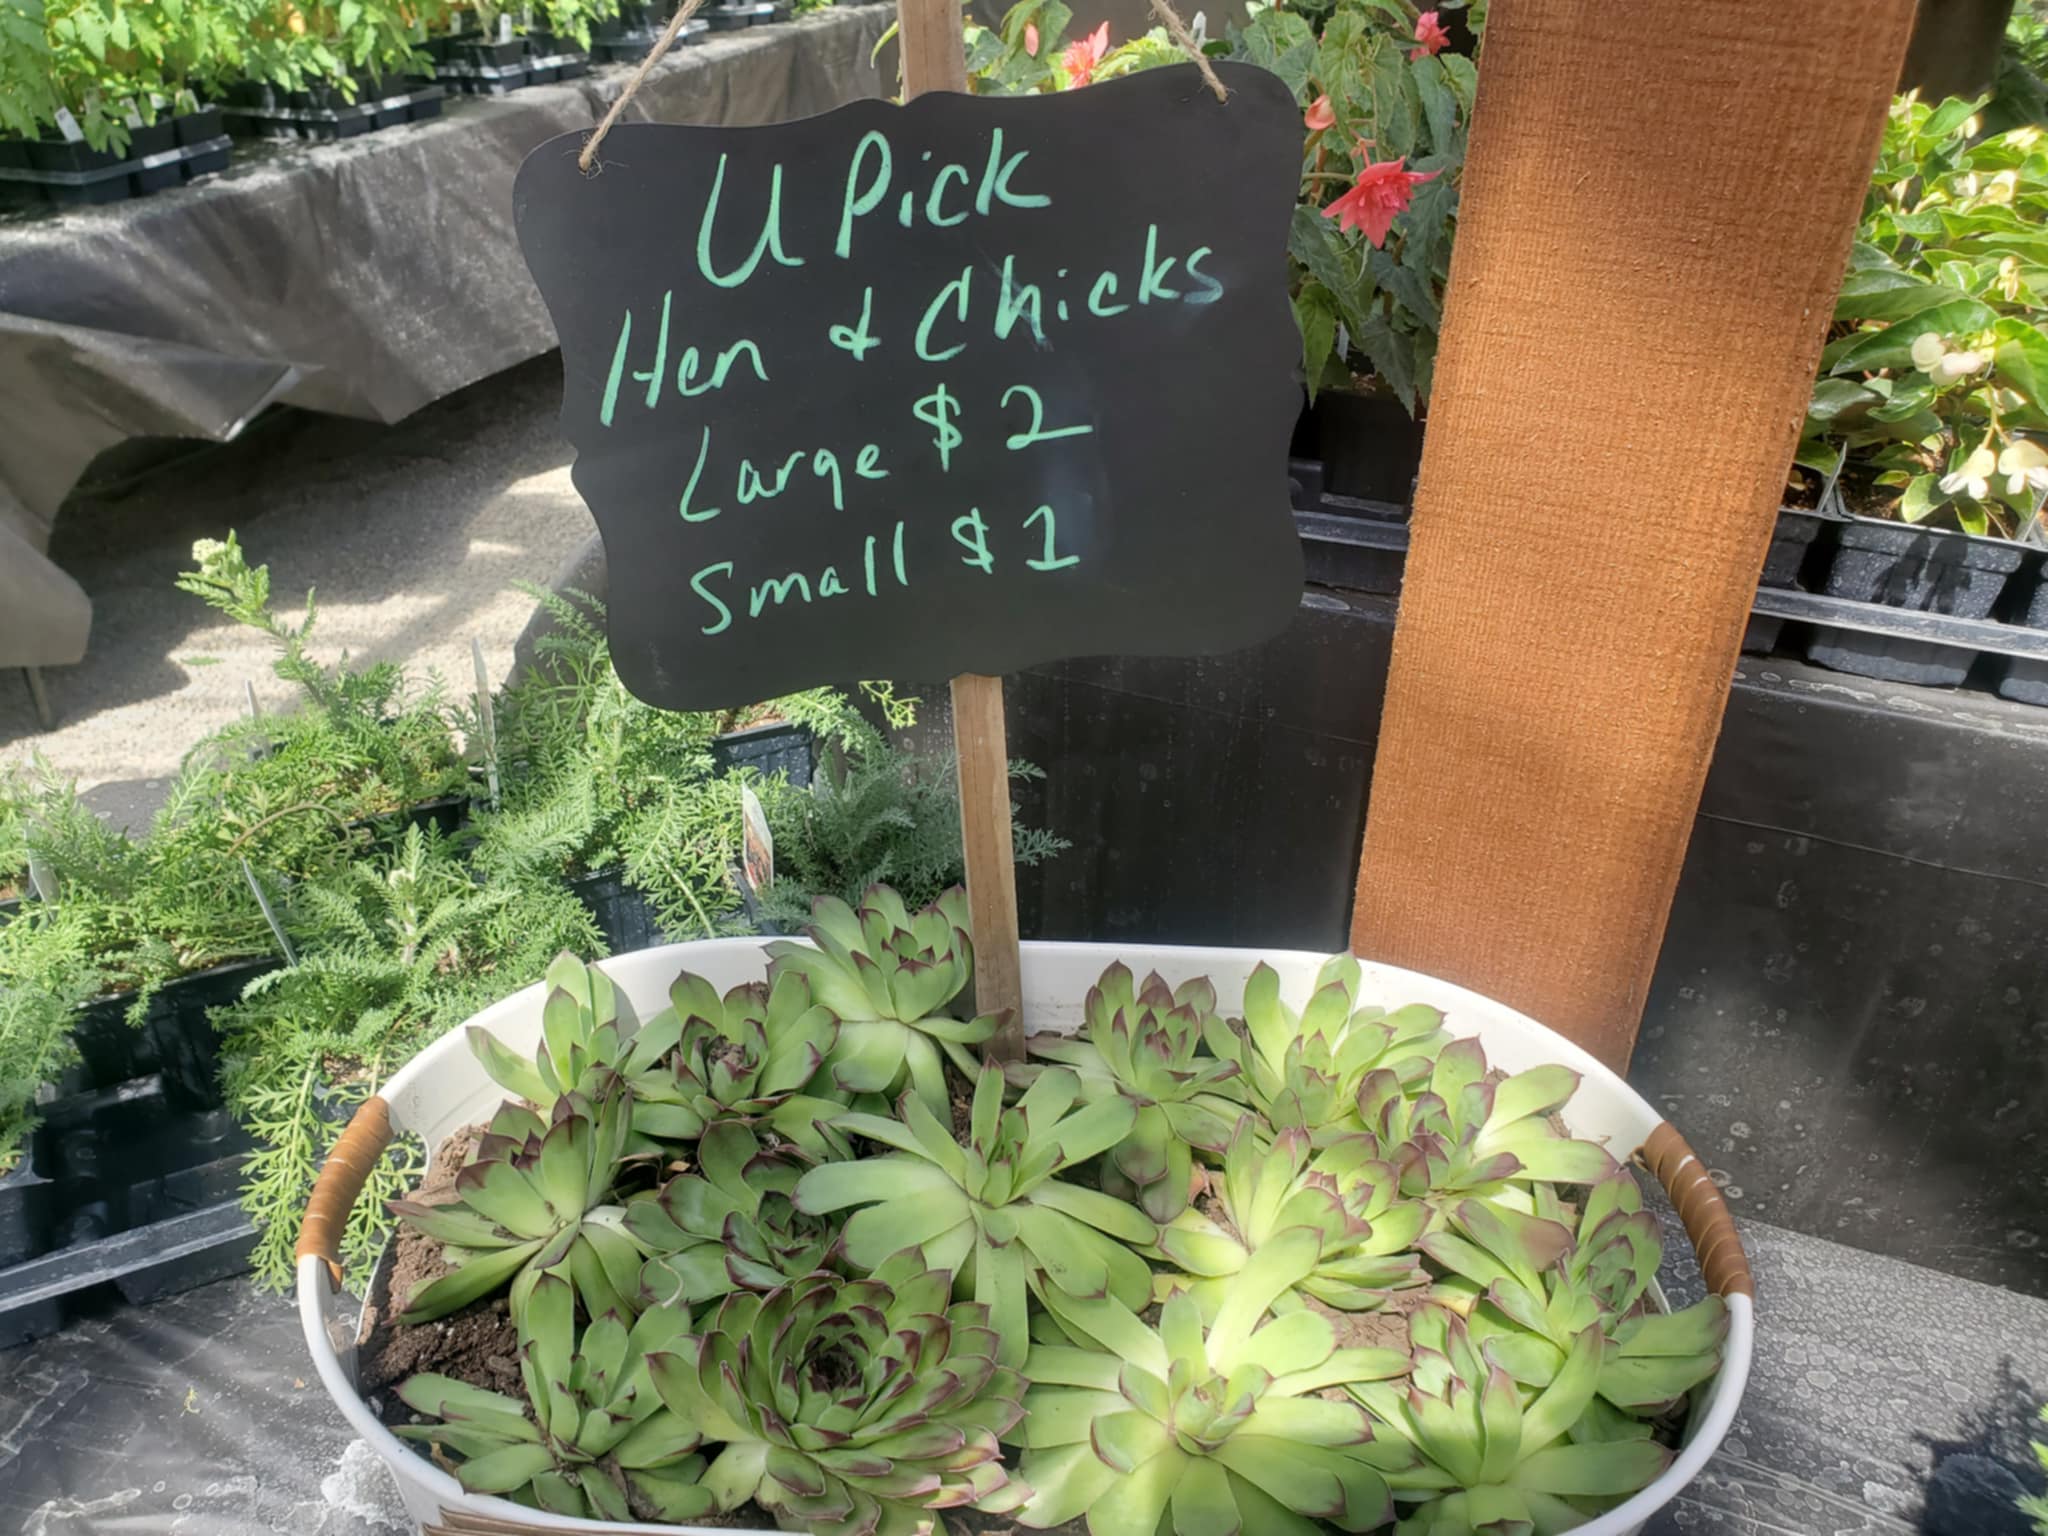 U Pick
Hen & Chicks
Large $2
Small $1